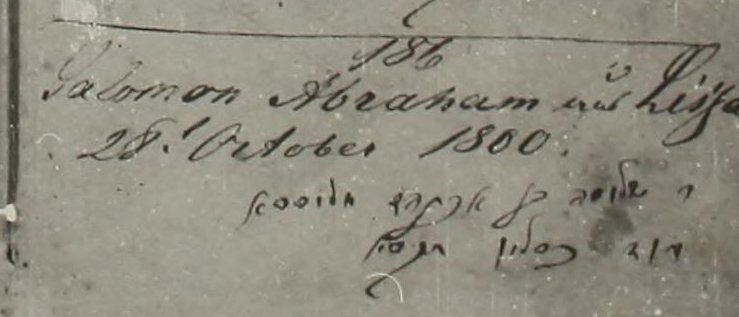 186
Salomon Abraham aus Lissa
28. October 1800.
ר שלומה בן אברהם מליססא